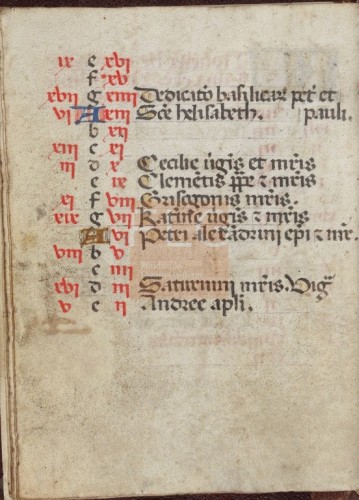 ix e xvi
f xv
xvii g xiiii Dedicatō basilicar petri et
vi A xiii Sc̄e helisabeth. pauli.
b xii
xiiii c xi
iii d x Cecilie ūgīs et mr̄is
e ix Clemētis pp̄e ⁊ mr̄is
xi f viii Grisogonis mr̄is.
xix g vii Katĩe ūgis ⁊ mr̄is
A vi Petri alexādrini ep̄i ⁊ mr̄.
viii b v
c iiii
xvi d iii Saturnini mr̄is. Vig̃
v e ii Andree apl̄i.